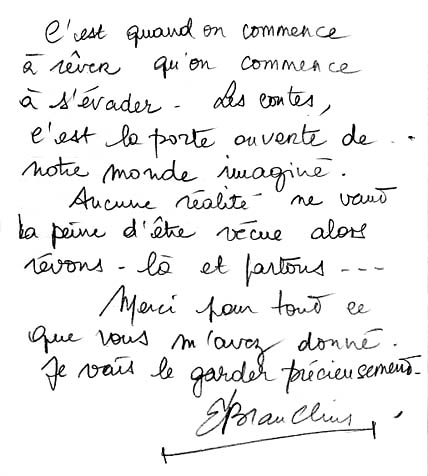 C'est quand on commence
à rêver qu'on commence
à s'évader - Les contes,
c'est la porte ouverte de . .
notre monde imaginé.
Aucune réalité ne vaut
la peine d'être vécue alors
rêvons - là et partons ---
Merci pour tout ce
que vous m'avez donné.
Je vais le garder précieusement.